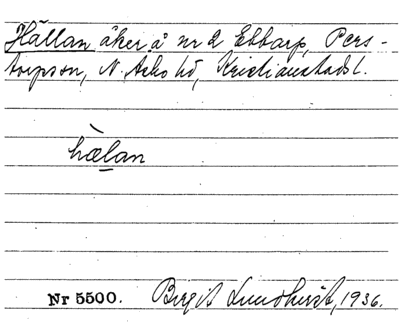 Hällan åker å nr 2 Ebbarp, Pers-
torpssn, N. Åsbo hd, Kristianstads l.
hælan
Nr 5500. Birgit Lundqvist, 1936.